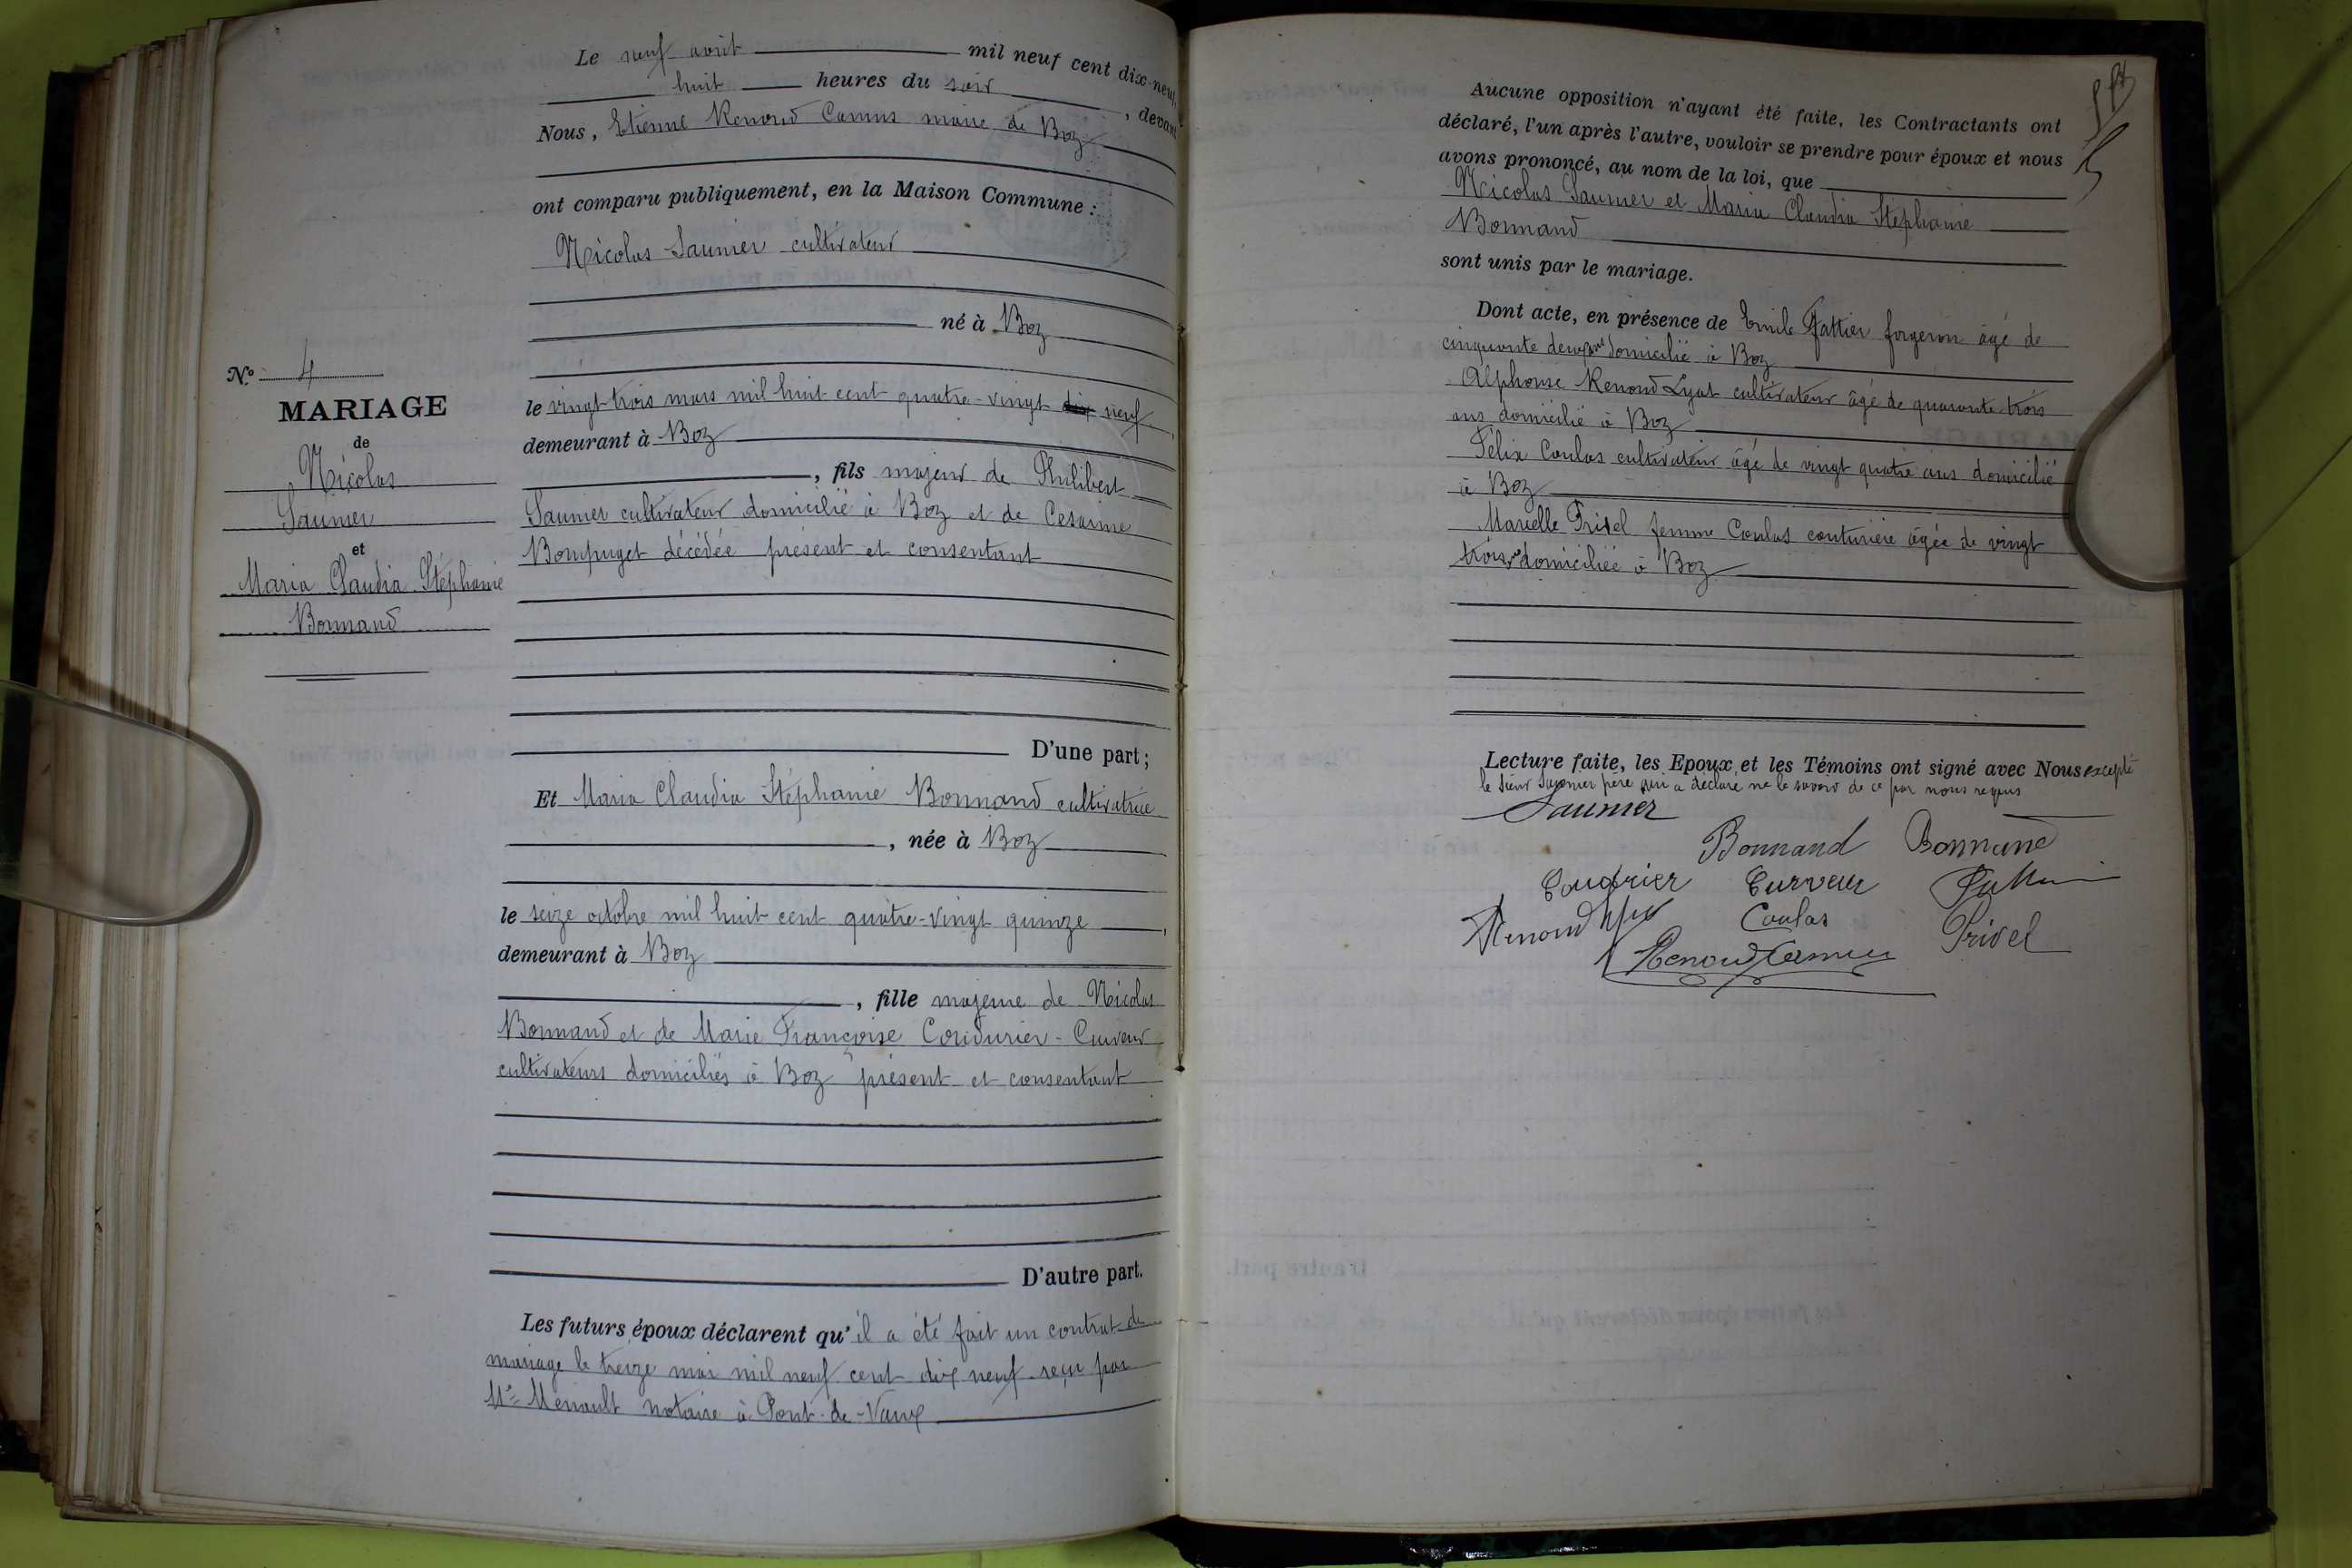 Le neuf avril mil neuf cent dix-neuf,
huit heures du soir, devant
Nous, Etienne Renoud Camus maire de Boz
ont comparu publiquement, en la Maison Commune :
Nicolas Saunier cultivateur
né à Boz
le vingt trois mars mil huit cent quatre-vingt dix neuf
demeurant à Boz
, fils majeur de Philibert
Saunier cultivateur domicilié à Boz et de Cesarine
Bompuget décédée présent et consentant
D'une part ;
N° 4
MARIAGE
de
Nicolas
Saunier
et
Maria Claudia Stéphanie
Bonnand
Et Maria Claudia Stéphanie Bonnand cultivatrice
, née à Boz
le seize octobre mil huit cent quatre-vingt quinze ,
demeurant à Boz
, fille majeure de Nicolas
Bonnand et de Marie Françoise Coudurier-Curveur
cultivateurs domiciliés à Boz présent et consentant
D'autre part.
Les futurs époux déclarent qu'il a été fait un contrat de
mariage le treize mai mil neuf cent dix neuf reçu par
Me Menault notaire à Pont-de-Vaux
Aucune opposition n'ayant été faite, les Contractants ont
déclaré, l'un après l'autre, vouloir se prendre pour époux et nous
avons prononcé, au nom de la loi, que
Nicolas Saunier et Maria Claudia Stéphanie
Bonnand
sont unis par le mariage.
Dont acte, en présence de Emile forgeron âgé de
cinquante deux ans domicilié à Boz
Alphonse Renoud Lyat cultivateur âgé de quarante trois
ans domicilié à Boz
Félix Coulas cultivateur âgé de vingt quatre ans domicilié
à Boz
Marcelle Privel femme Coulas couturière âgée de vingt
trois ans domiciliée à Boz
Lecture faite, les Epoux et les Témoins ont signé avec Nous excepté
le sieur Saunier père qui a déclaré ne le savoir de ce par nous requis
Saunier
Bonnand Bonnand
Coudurier Curveur
Renoud Lyat Coulas Privel
Renoud Camus